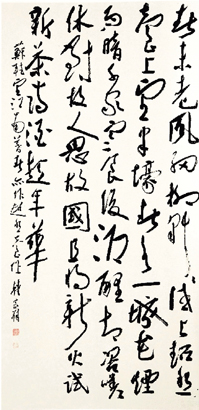 春未老風細柳斜斜試上超然
臺上望半壕春水一城花煙
雨暗千家寒食後酒醒却咨嗟
休對故人思故國且將新火試
新茶詩酒趁年華
蘇軾望江南暮春